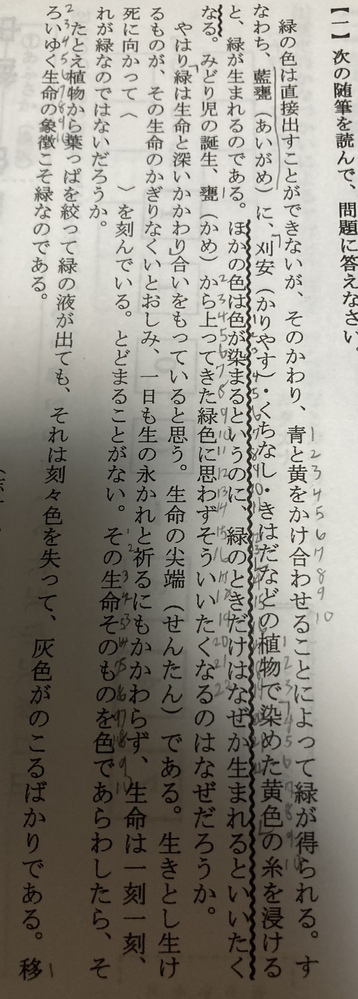 【一】次の随筆を読んで、問題に答えなさい。
緑の色は直接出すことができないが、そのかわり、青と黄をかけ合わせることによって緑が得られる。す
なわち、藍甕（あいがめ）に、刈安（かりやす）・くちなし・きはだなどの植物で染めた黄色の糸を浸ける
と、緑が生まれるのである。ほかの色は色が染まるというのに、緑のときだけはなぜか生まれるといいたく
なる。みどり児の誕生、甕（かめ）から上ってきた緑色に思わずそういいたくなるのはなぜだろうか。
やはり緑は生命と深いかかわり合いをもっていると思う。生命の尖端（せんたん）である。生きとし生け
るものが、その生命のかぎりなくいとおしみ、一日も生の永かれと祈るにもかかわらず、生命は一刻一刻、
死に向かって〈　　　〉を刻んでいる。とどまることがない。その生命そのものを色であらわしたら、そ
れが緑なのではないだろうか。
たとえ植物から葉っぱを絞って緑の液が出ても、それは刻々色を失って、灰色がのこるばかりである。移
ろいゆく生命の象徴こそ緑なのである。